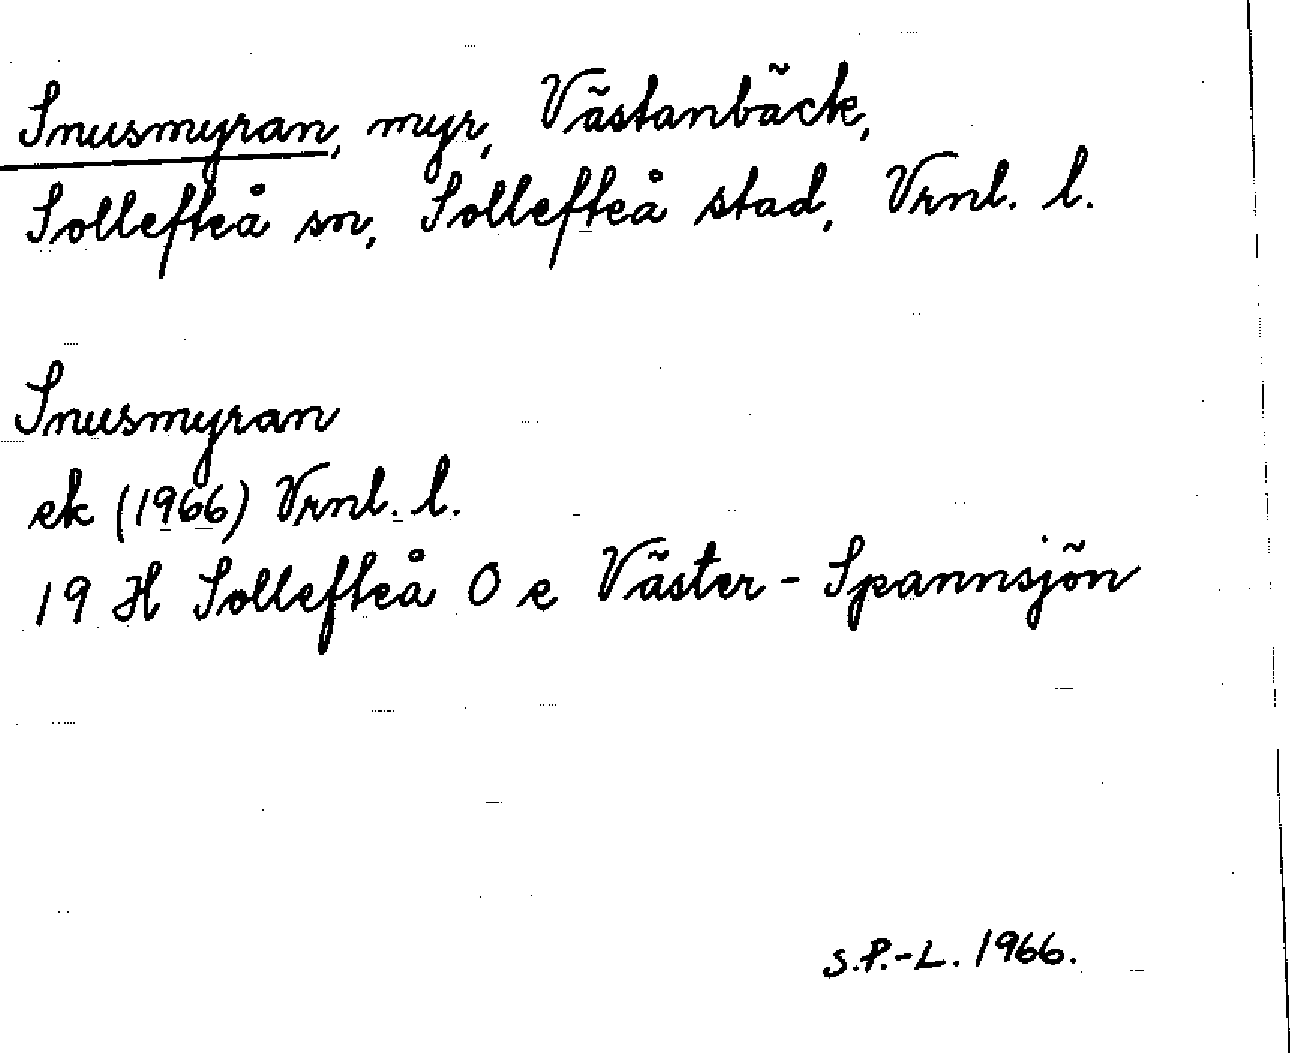 Snusmyran, myr, Västanbäck,
Sollefteå sn, Sollefteå stad, Vrnl. l.
Snusmyran
ek (1966) Vrnl. l.
19 H Sollefteå O e Väster-Spannsjön
S.P.-L. 1966.